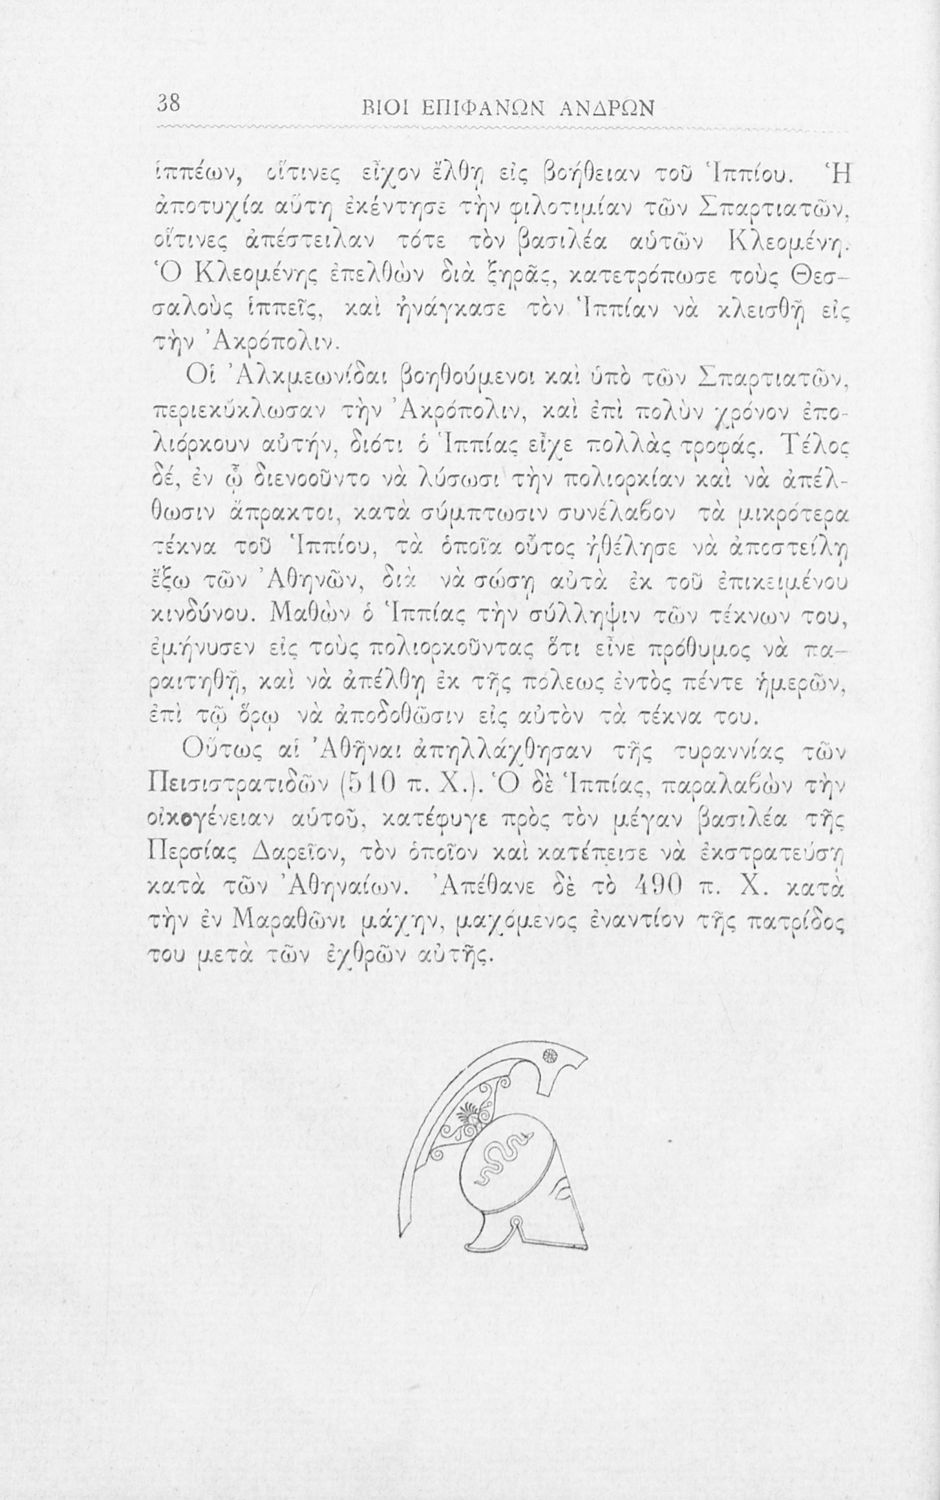 38 ΒΙΟΙ ΕΠΙΦΑΝΩΝ ΑΝΔΡΩΝ
ἱππέων, οἵτινες εἶχον ἔλθῃ εἰς βοήθειαν τοῦ Ἱππίου. Ἡ
ἀποτυχία αὕτη ἐκέντησε τὴν φιλοτιμίαν τῶν Σπαρτιατῶν,
οἵτινες ἀπέστειλαν τότε τὸν βασιλέα αὑτῶν Κλεομένη.
Ὁ Κλεομένης ἐπελθὼν διὰ ξηρᾶς, κατετρόπωσε τοὺς Θεσ-
σαλοὺς ἱππεῖς, καὶ ἠνάγκασε τὸν Ἱππίαν νὰ κλεισθῇ εἰς
τὴν Ἀκρόπολιν.
Οἱ Ἀλκμεωνίδαι βοηθούμενοι καὶ ὑπὸ τῶν Σπαρτιατῶν,
περιεκύκλωσαν τὴν Ἀκρόπολιν, καὶ ἐπὶ πολὺν χρόνον ἐπο-
λιόρκουν αὐτήν, διότι ὁ Ἱππίας εἶχε πολλὰς τροφάς. Τέλος
δέ, ἐν ᾧ διενοοῦντο νὰ λύσωσι τὴν πολιορκίαν καὶ νὰ ἀπέλ-
θωσιν ἄπρακτοι, κατὰ σύμπτωσιν συνέλαβον τὰ μικρότερα
τέκνα τοῦ Ἱππίου, τὰ ὁποῖα οὗτος ἠθέλησε νὰ ἀποστείλῃ
ἔξω τῶν Ἀθηνῶν, διὰ νὰ σώσῃ αὐτὰ ἐκ τοῦ ἐπικειμένου
κινδύνου. Μαθὼν ὁ Ἱππίας τὴν σύλληψιν τῶν τέκνων του,
ἐμήνυσεν εἰς τοὺς πολιορκοῦντας ὅτι εἶνε πρόθυμος νὰ πα-
ραιτηθῇ, καὶ νὰ ἀπέλθῃ ἐκ τῆς πόλεως ἐντὸς πέντε ἡμερῶν,
ἐπὶ τῷ ὅρῳ νὰ ἀποδοθῶσιν εἰς αὐτὸν τὰ τέκνα του.
Οὕτως αἱ Ἀθῆναι ἀπηλλάχθησαν τῆς τυραννίας τῶν
Πεισιστρατιδῶν (510 π. Χ.). Ὁ δὲ Ἱππίας, παραλαβὼν τὴν
οἰκογένειαν αὑτοῦ, κατέφυγε πρὸς τὸν μέγαν βασιλέα τῆς
Περσίας Δαρεῖον, τὸν ὁποῖον καὶ κατέπεισε νὰ ἐκστρατεύσῃ
κατὰ τῶν Ἀθηναίων. Ἀπέθανε δὲ τὸ 490 π. Χ. κατὰ
τὴν ἐν Μαραθῶνι μάχην, μαχόμενος ἐναντίον τῆς πατρίδος
του μετὰ τῶν ἐχθρῶν αὐτῆς.